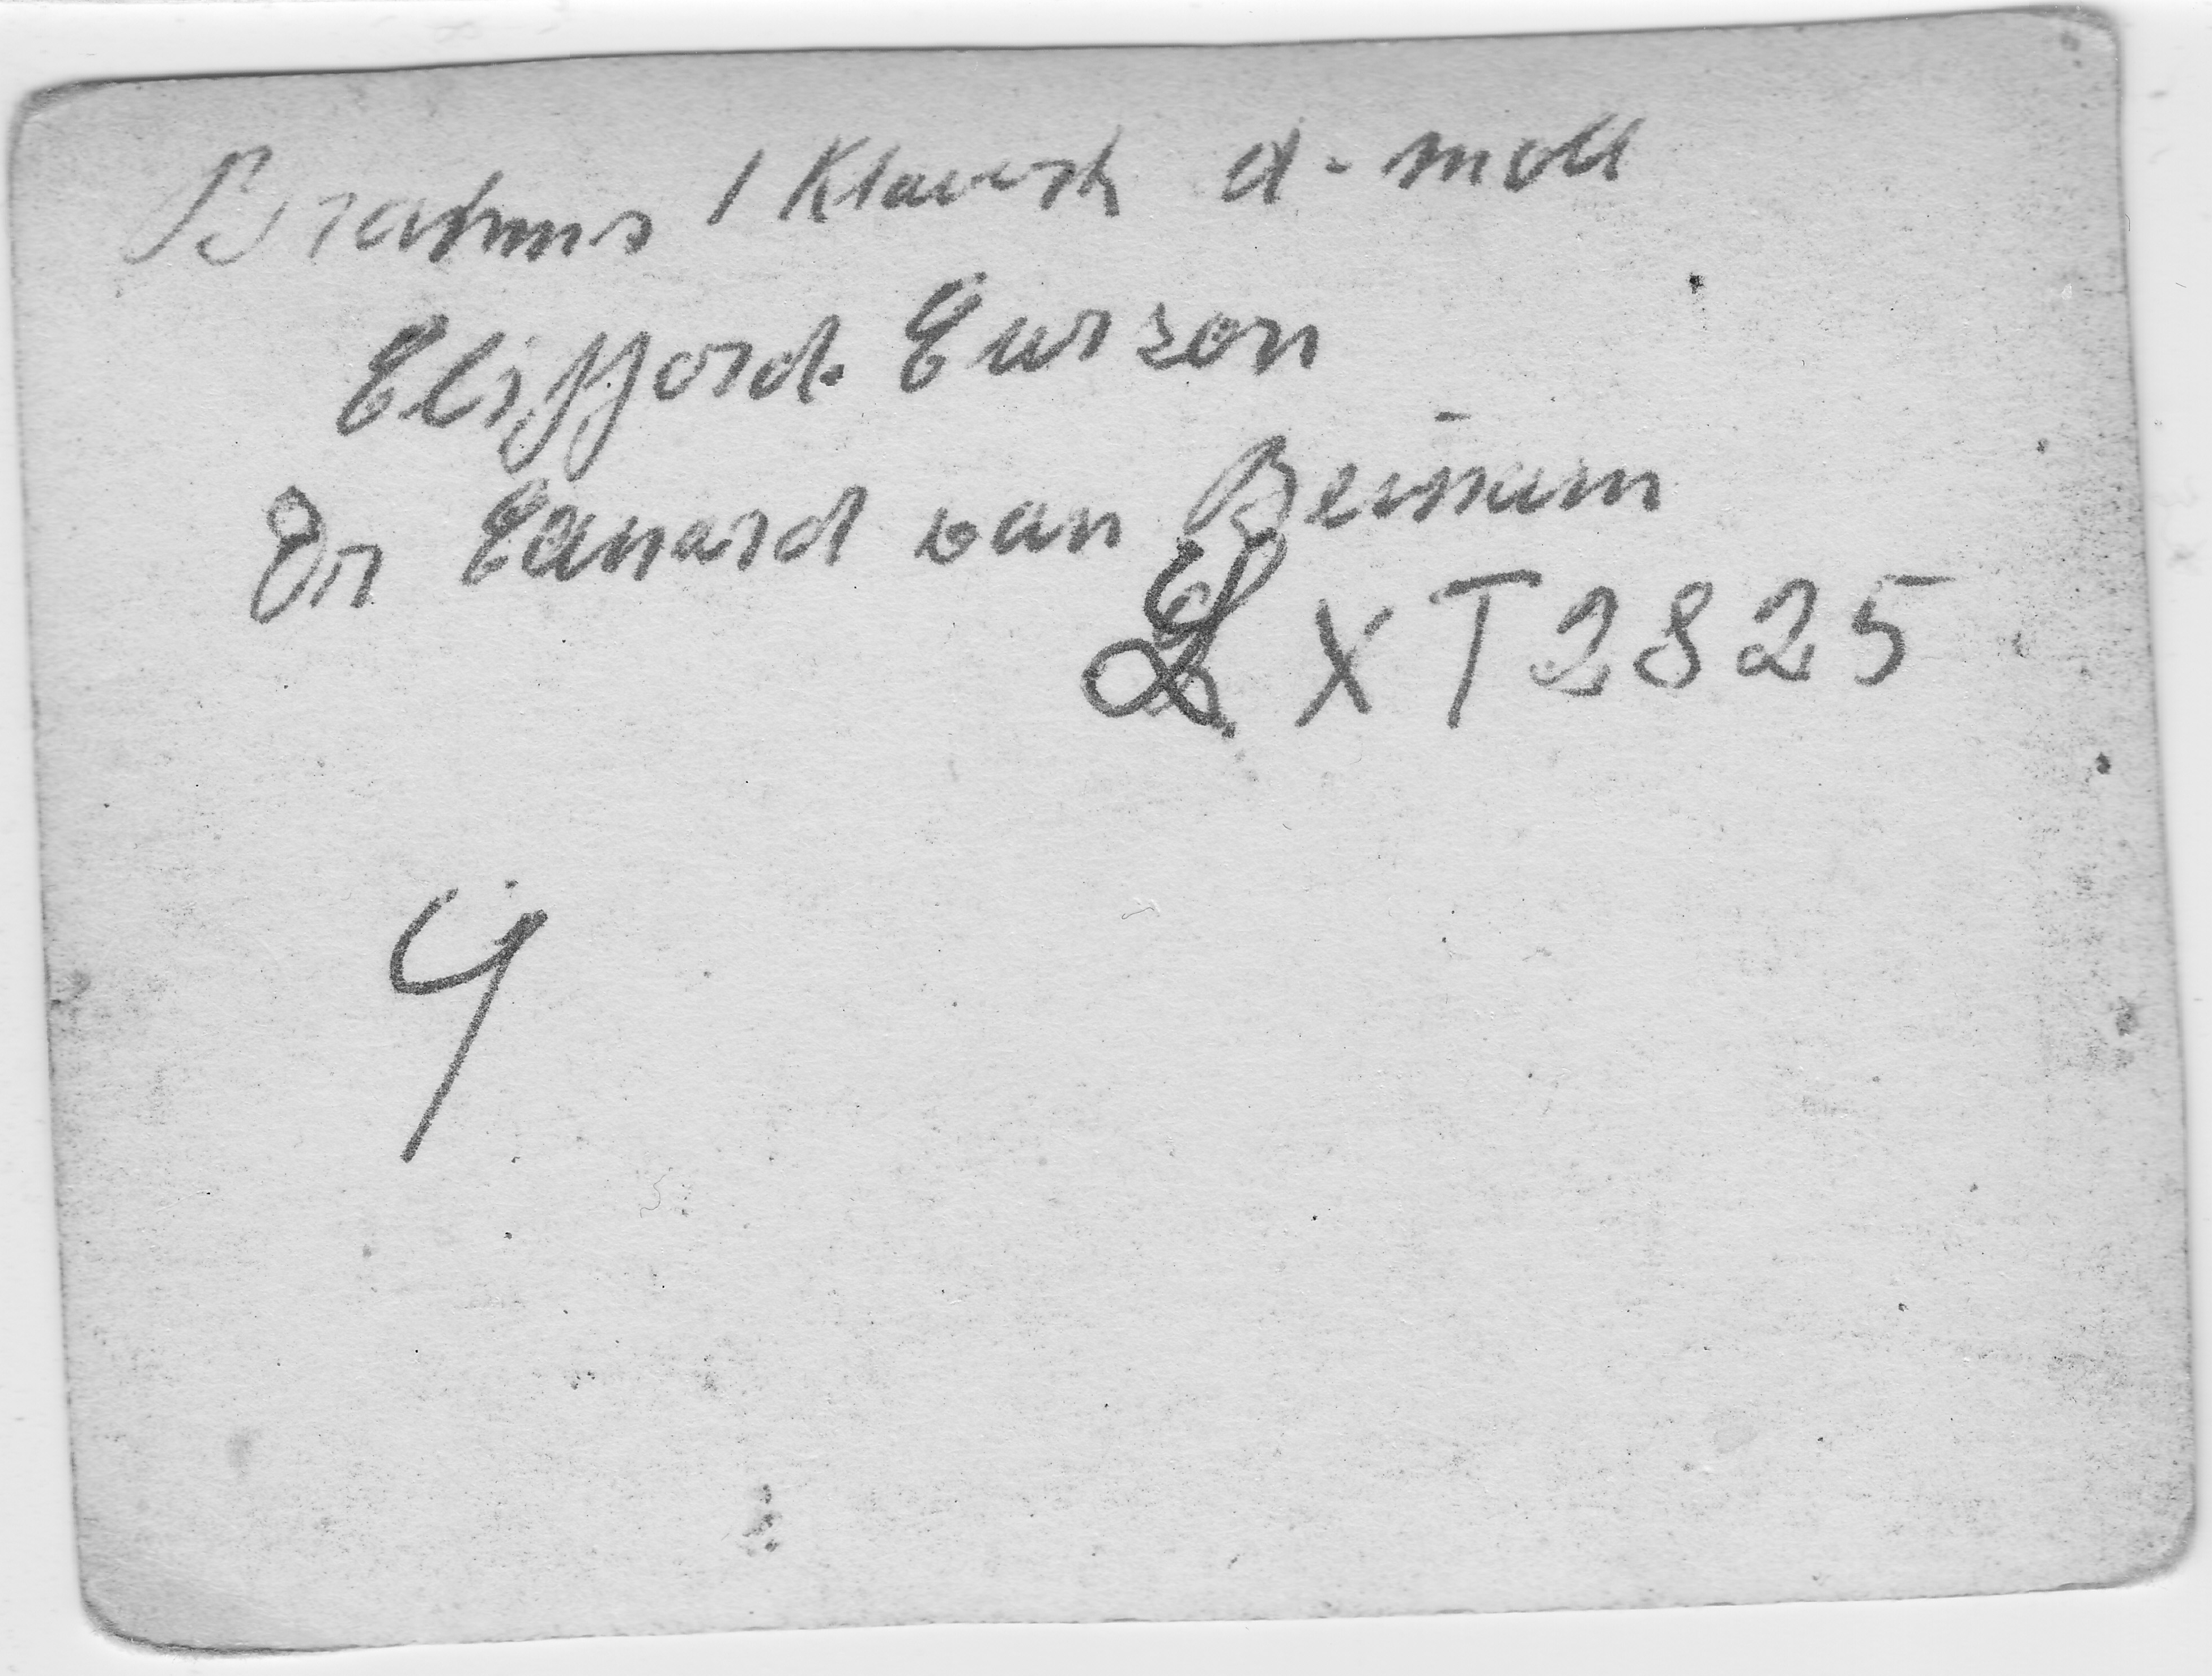 Brahms 1 Klavierk d-moll
Clifford Curzon
Dr Eduard van Beinum
LXT2825
4